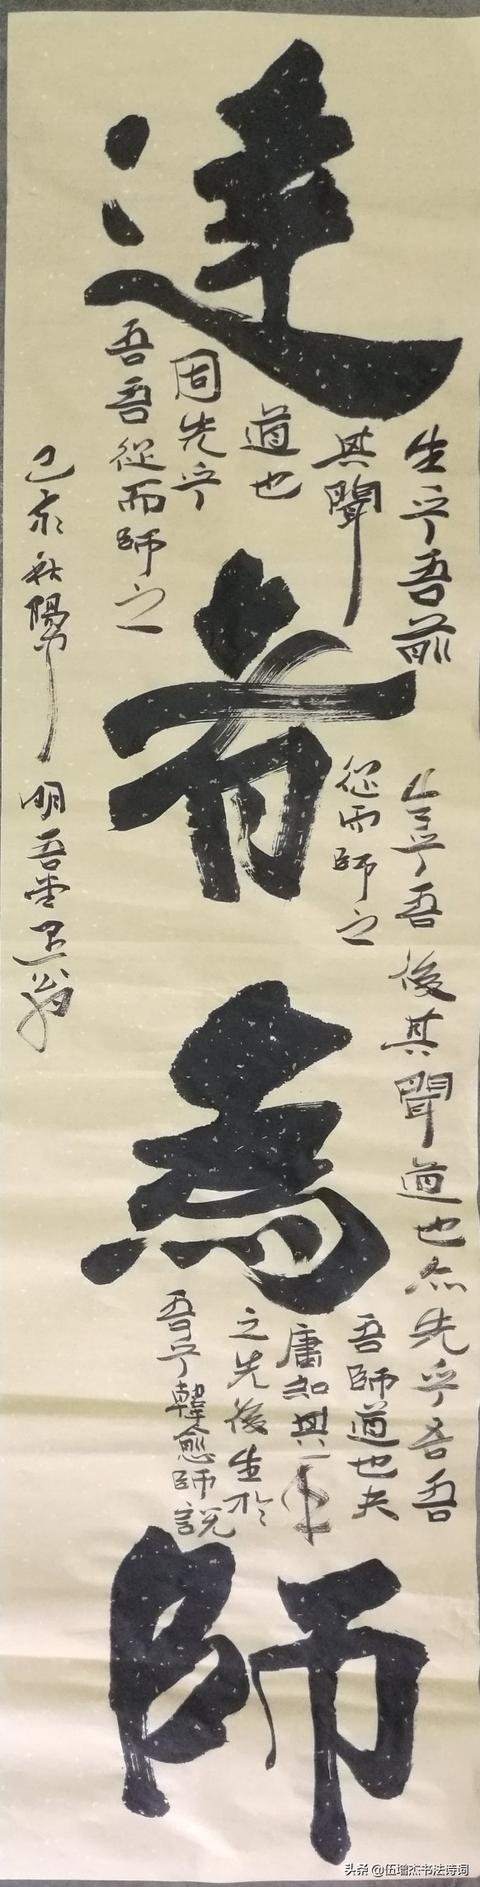 達者為師
生乎吾前
其聞
道也
固先乎
吾吾從而師之
生乎吾後其聞道也亦先乎吾吾
從而師之
吾師道也夫
庸知其年
之先後生於
吾乎韓愈師說
己亥秋陽
明吾堂
头条 @伍瑞杰书法诗词